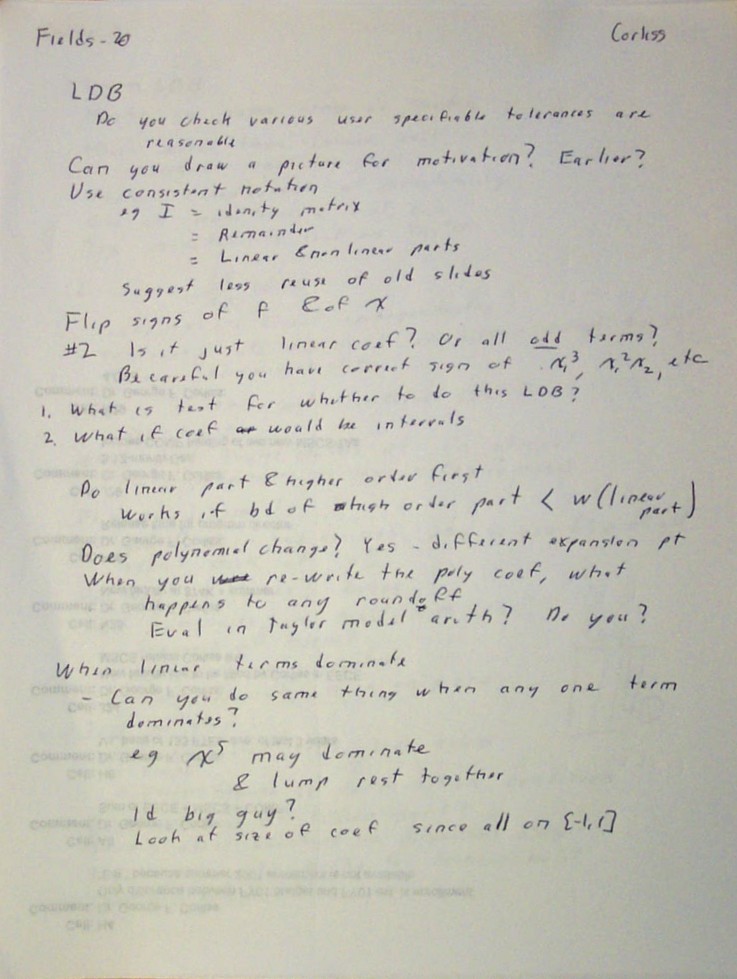 Fields - 20
Corliss
LDB
Do you check various user specifiable tolerances are
reasonable
Can you draw a picture for motivation? Earlier?
Use consistent notation
eg I = identity matrix
= Remainder
= Linear & nonlinear parts
Suggest less reuse of old slides
Flip signs of f & of x
#2 Is it just linear coef? Or all odd terms?
Be careful you have correct sign of x₁³, x₁²x₂, etc
1. What is test for whether to do this LDB?
2. What if coef would be intervals
Do linear part & higher order first
Works if bd of high order part < w(linear part)
Does polynomial change? Yes - different expansion pt
When you re-write the poly coef, what
happens to any roundoff
Eval in Taylor model arith? Do you?
When linear terms dominate
- Can you do same thing when any one term
dominates?
eg x⁵ may dominate
& lump rest together
Id big guy?
Look at size of coef since all on [-1,1]